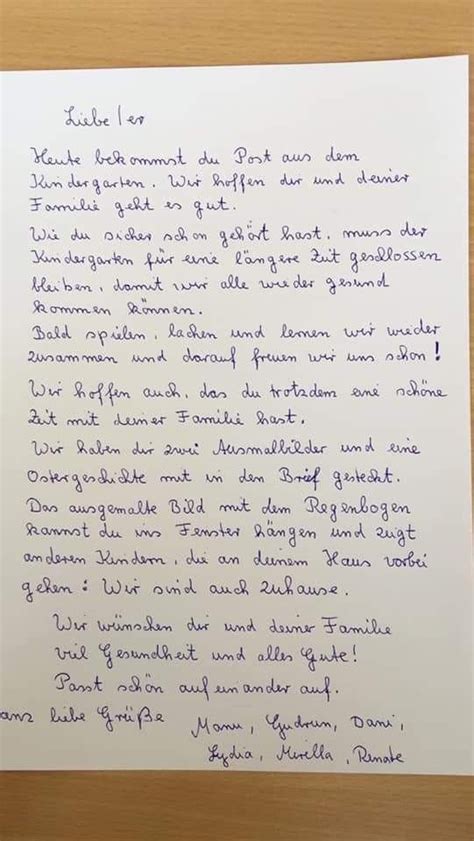 Liebe/er
Heute bekommst du Post aus dem
Kindergarten. Wir hoffen dir und deiner
Familie geht es gut.
Wie du sicher schon gehört hast, muss der
Kindergarten für eine längere Zeit geschlossen
bleiben, damit wir alle wieder gesund
kommen können.
Bald spielen, lachen und lernen wir wieder
zusammen und darauf freuen wir uns schon!
Wir hoffen auch, das du trotzdem eine schöne
Zeit mit deiner Familie hast.
Wir haben dir zwei Ausmalbilder und eine
Ostergeschichte mit in den Brief gesteckt.
Das ausgemalte Bild mit dem Regenbogen
kannst du ins Fenster hängen und zeigt
anderen Kindern, die an deinem Haus vorbei
gehen: Wir sind auch zuhause.
Wir wünschen dir und deiner Familie
viel Gesundheit und alles Gute!
Passt schön aufeinander auf.
anz liebe Grüße
Manu, Gudrun, Dani,
Lydia, Mirella, Renate